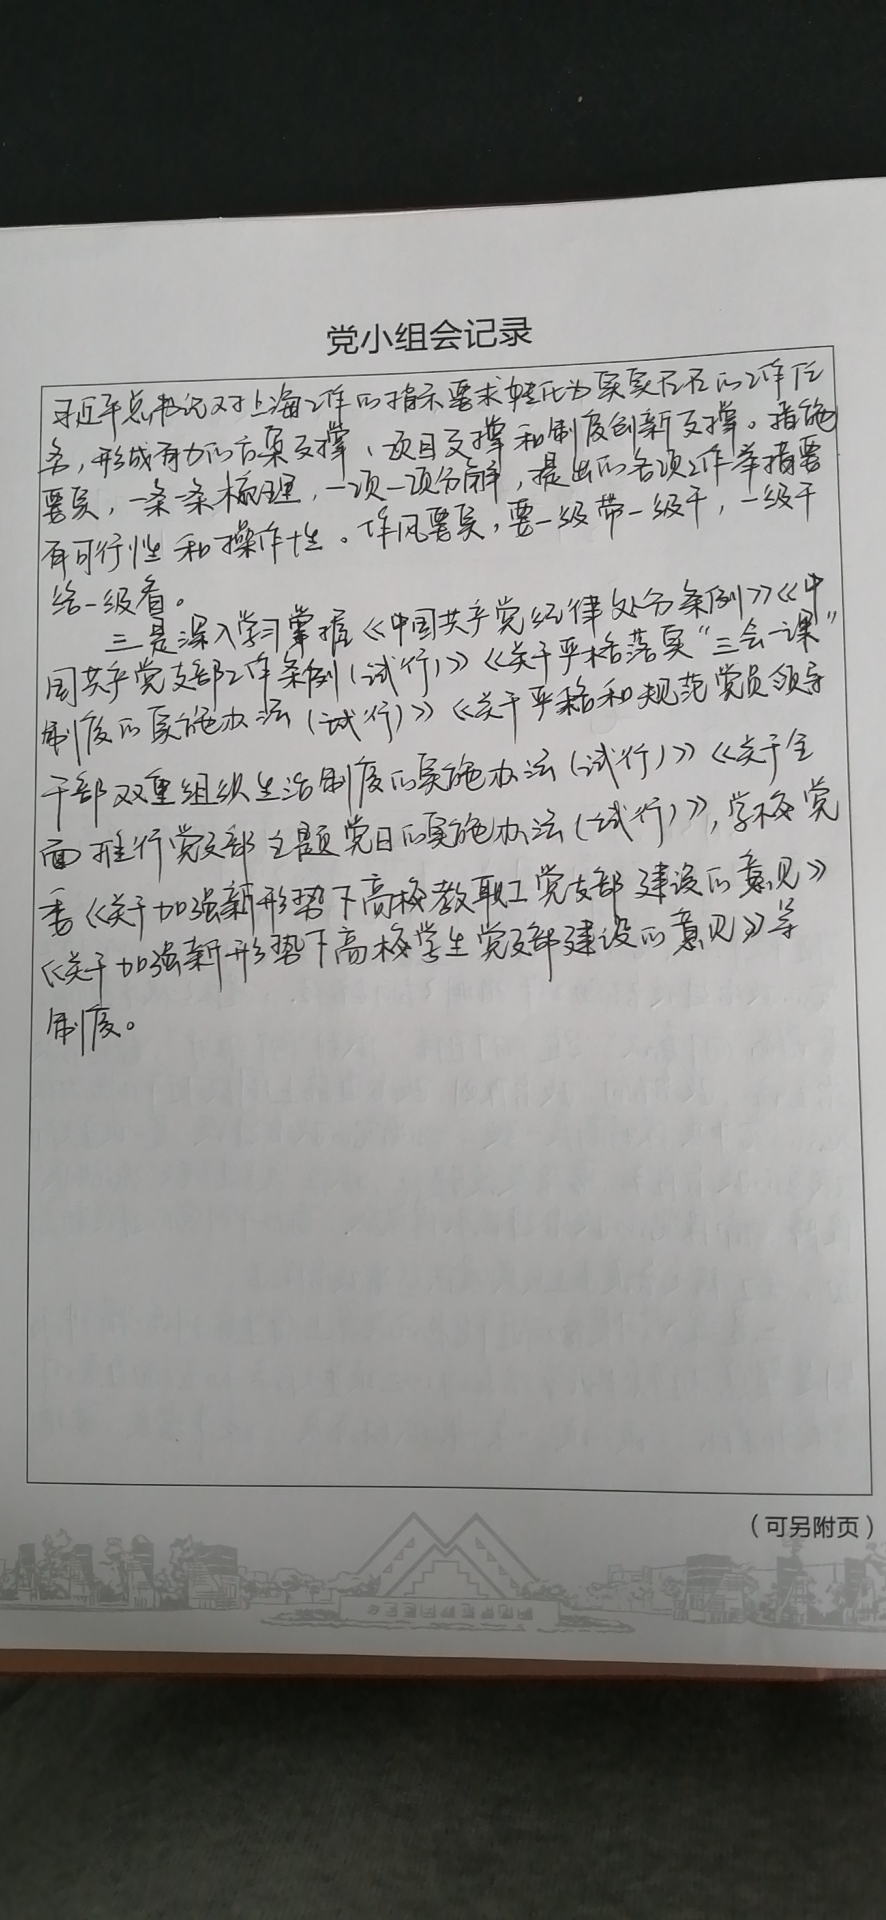 党小组会记录
习近平总书记对上海工作的指示要求转化为实实在在的工作任
务，形成有力的政策支撑、项目支撑和制度创新支撑。措施
要实，一条一条梳理，一项一项分解，提出的各项工作举措要
有可行性和操作性。作风要实，要一级带一级干，一级干
给一级看。
三是深入学习掌握《中国共产党纪律处分条例》《中
国共产党支部工作条例（试行）》《关于严格落实“三会一课”
制度的实施办法（试行）》《关于严格和规范党员领导
干部双重组织生活制度的实施办法（试行）》《关于全
面推行党支部主题党日的实施办法（试行）》，学校党
委《关于加强新形势下高校教职工党支部建设的意见》
《关于加强新形势下高校学生党支部建设的意见》等
制度。
（可另附页）